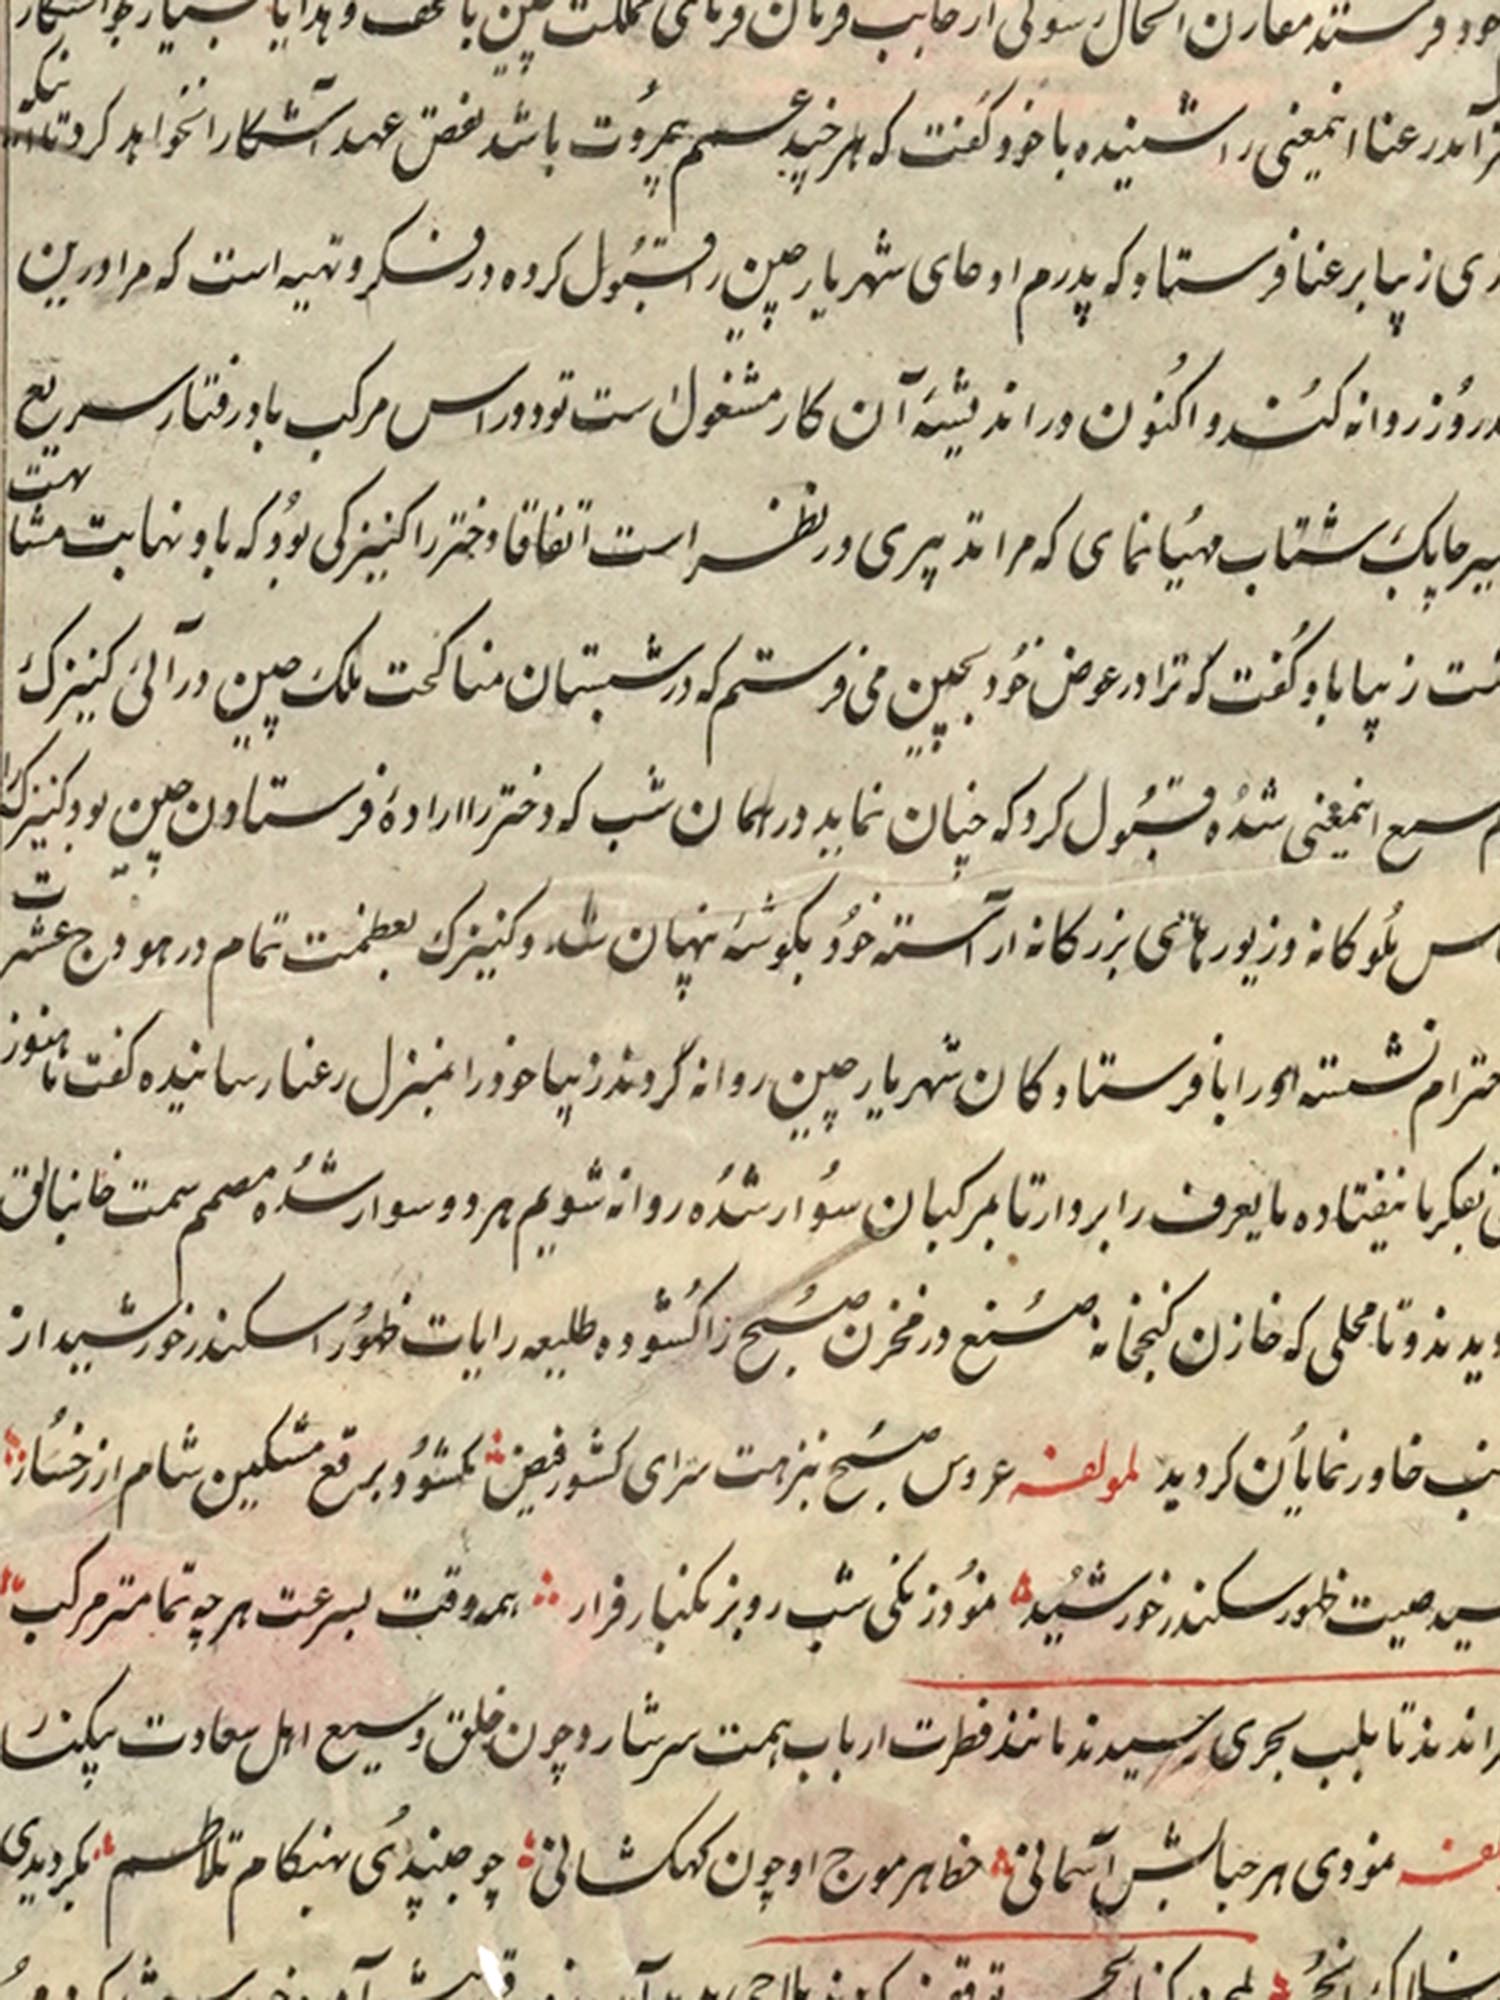 خود فرستد مقارن الحال رسولی از جانب فرمان فرمای مملکت چین با تحف و هدایا بسیار
آمد رعنا اینمعنی را شنیده با خود گفت که هر چند عمم بیمروت باشد نقض عهد آشکارا نخواهد کرد تا آنکه
زیبا برعنا فرستاد که پدرم ادعای شهریار چین را قبول کرده در فکر و تهیه است که مرا درین
روز روانه کند و اکنون در اندیشهٔ آن کار مشغول است تو دو راس مرکب بادرفتار سریع
سیر چابک شتاب مهیا نمای که مرا تدبیری در نظر است اتفاقا دختر را کنیزکی بود که باو نهایت مشابهت
داشت زیبا باو گفت که ترا در عوض خود بچین می فرستم که در شبستان مناکحت ملک چین در آئی کنیزک
سمع اینمعنی شده قبول کرد که چنان نماید در همان شب که دختر را ارادهٔ فرستادن چین بود کنیزک را
ملوکانه و زیورهای بزرکانه آراسته خود بکوشهٔ پنهان شد و کنیزک بعظمت تمام در هودج عشرت
احترام نشسته او را با فرستادکان شهریار چین روانه گردند زیبا خود را بمنزل رعنا رسانیده کفت تا هنوز
بفکر ما نیفتاده ما یعرف را بردار تا بمرکبان سوار شده روانه شویم هر دو سوار شده مصمم سمت خانبالق
کردیدند و تا محلی که خازن کنجخانهٔ صنع در مخزن صبح را کشوده طلیعه رایات ظهور اسکندر خورشید از
جانب خاور نمایان کردید لمولفه عروس صبح بنزهت سرای کشور فیض کشود برقع مشکین شام از رخسار
رسید صیت ظهور سکندر خورشید نمود زنکی شب رو بزنکبار فرار همه وقت بسرعت هر چه تمامتر مرکب
راندند تا بلب بحری رسیدند مانند فطرت ارباب همت سرشار و چون خلق وسیع اهل سعادت بیکنار
لمولفه نمودی هر حبابش آسمانی خط هر موج او چون کهکشانی چو جنبیدی بهنکام تلاطم بکردیدی